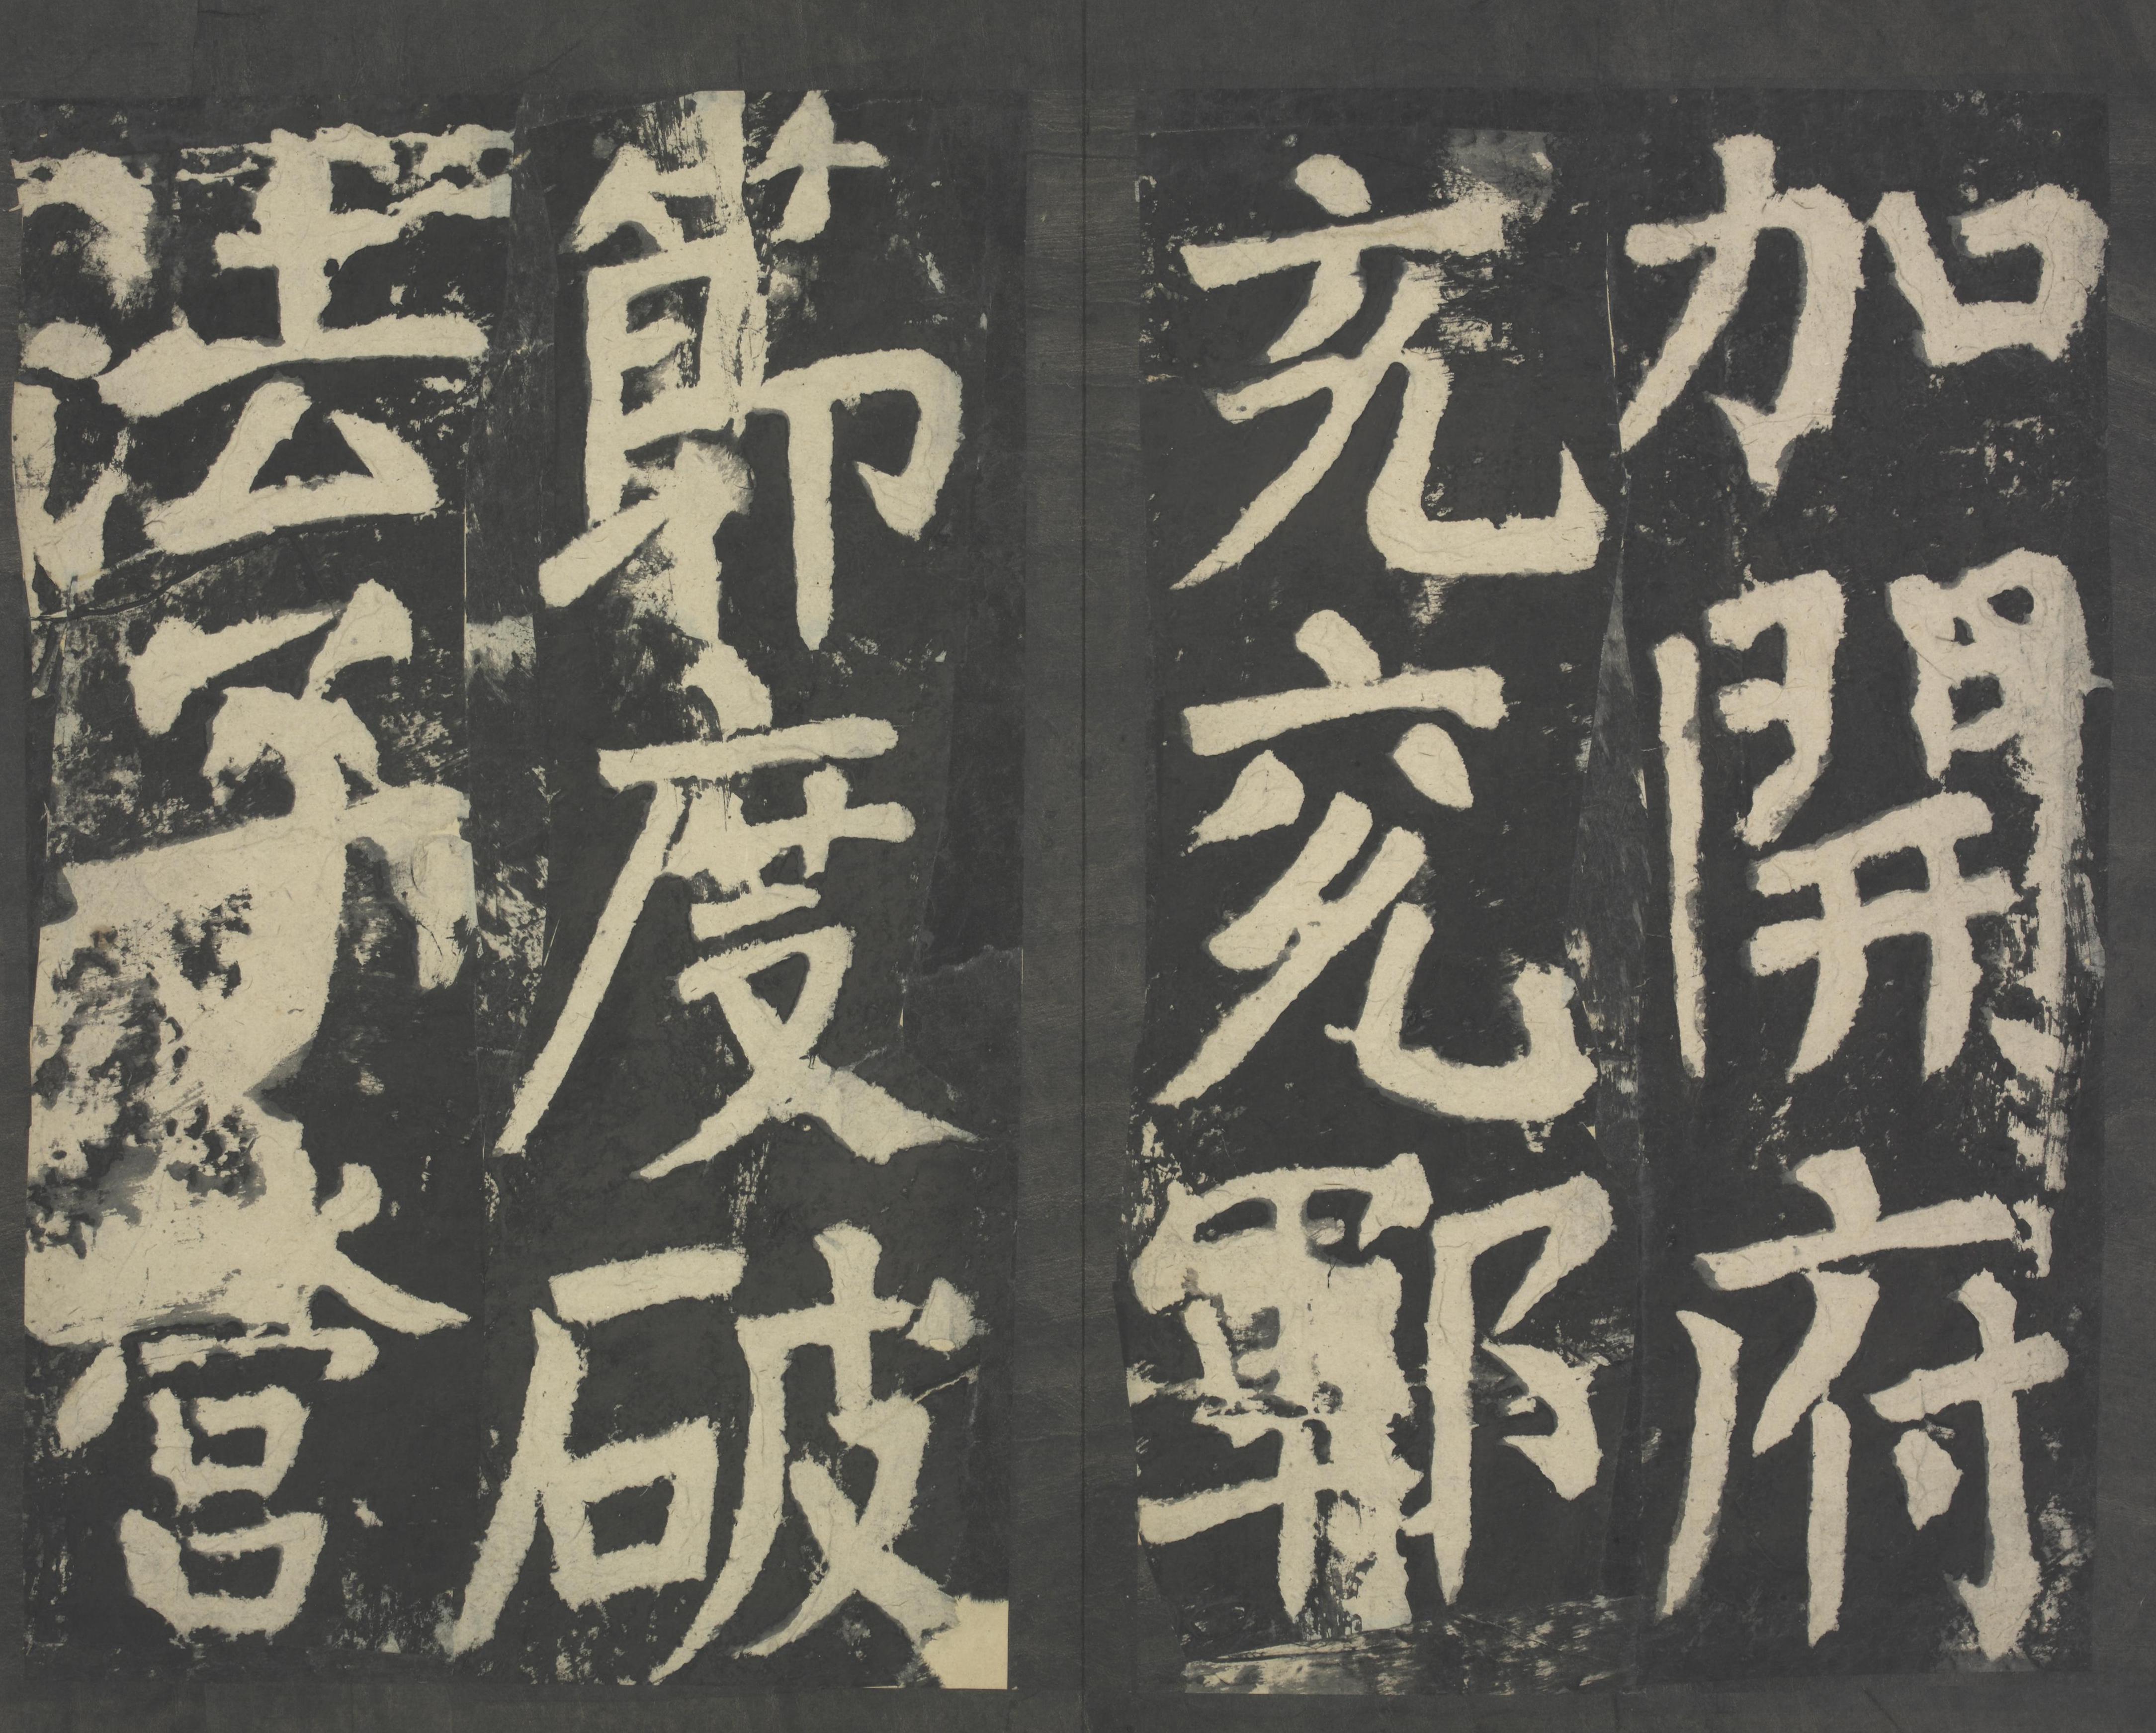 加開府
充兗鄆
節度破
法子營